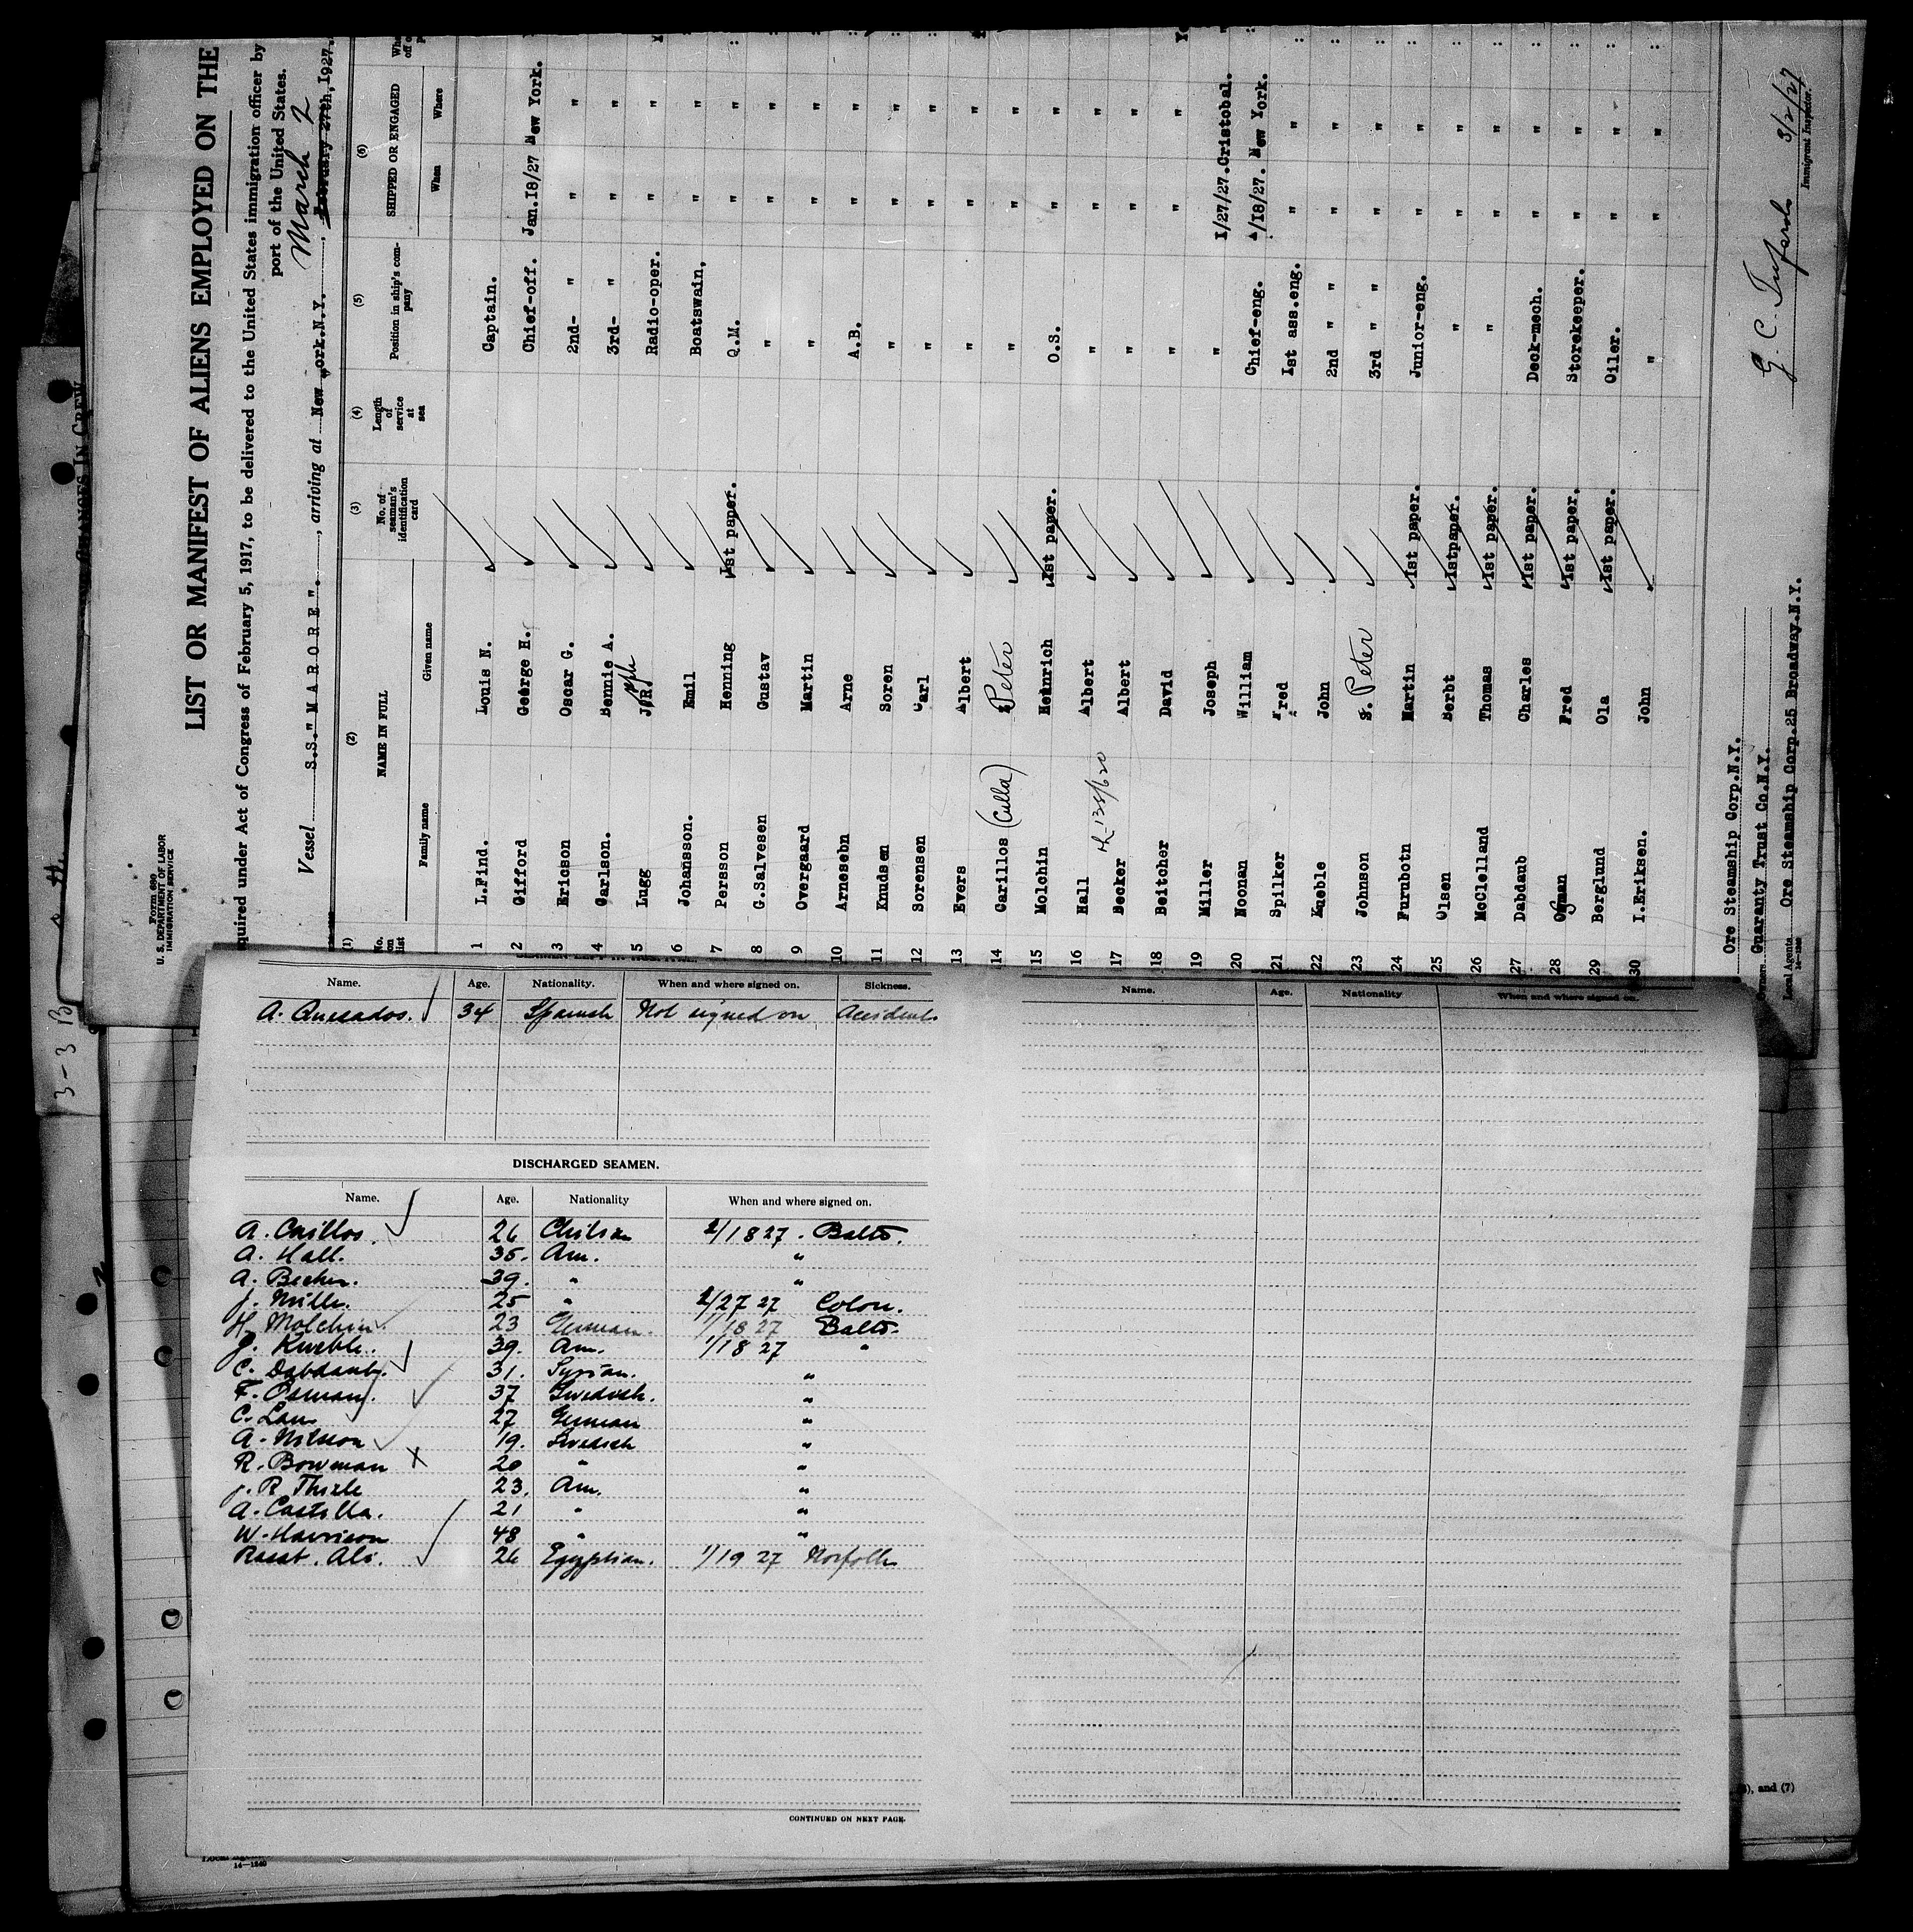 CHANGES IN CREW
3-3 B
Form 689
U. S. DEPARTMENT OF LABOR
IMMIGRATION SERVICE
LIST OR MANIFEST OF ALIENS EMPLOYED ON THE
quired under Act of Congress of February 5, 1917, to be delivered to the United States immigration officer by
port of the United States.
Vessel S.S."MARORE"., arriving at New York.N.Y. March 2, February 27th, 1927.
(1) No. on list (2) NAME IN FULL Family name Given name (3) No. of seaman's identification card (4) Length of service at sea (5) Position in ship's company (6) SHIPPED OR ENGAGED When Where
1 L.Find. Louis N. Captain.
2 Gifford George H. Chief-off. Jan.18/27 New York.
3 Ericson Oscar G. 2nd- " " "
4 Carlson. Bennie A. 3rd- " " "
5 Lugg J.R. Radio-oper. " "
6 Johansson. Emil Boatswain. " "
7 Persson Henning 1st paper. Q.M. " "
8 G.Salvesen Gustav " " "
9 Overgaard Martin " " "
10 Arnesebn Arne A.B. " "
11 Knudsen Soren " " "
12 Sorensen Carl " " "
13 Evers Albert " " "
14 Carillos (Culla) Peter " " "
15 Molchin Heinrich 1st paper. O.S. " "
16 Hall Albert " " "
17 Becker Albert " " "
18 Beitcher David " " "
19 Miller Joseph " 1/27/27.Cristobal.
20 Noonan William Chief-eng. 1/18/27. New York.
21 Spilker Fred 1st ass.eng. " "
22 Kueble John 2nd " " " "
23 Johnson S. Peter 3rd " " " "
24 Furubotn Martin 1st paper. Junior-eng. " "
25 Olsen Berbt 1stpaper. " " "
26 McClelland Thomas 1st paper. " " "
27 Dabdaub Charles 1st paper. Deck-mech. " "
28 Osman Fred 1st paper. Storekeeper. " "
29 Berglund Ola 1st paper. Oiler. " "
30 I.Eriksen. John " " "
Ore Steamship Corp.N.Y.
Owners Guaranty Trust Co.N.Y.
Local Agents Ore Steamship Corp.25 Broadway.N.Y.
14—1240
G. C. 3/2/27
Immigrant Inspector.
Name. Age. Nationality. When and where signed on. Sickness.
A. Quesados. 34 Spanish Not signed on Accident.
DISCHARGED SEAMEN.
Name. Age. Nationality When and where signed on.
A. Carillos. 26 Chilian 1/18 27. Balto.
A. Hall. 35. Am. "
A. Becker. 39. " "
J. Miller. 25 " 1/27 27 Colon.
H. Molchin 23 German. 1/18 27 Balto.
J. Kueble. 39. Am. 1/18 27 "
C. Dabdaub. 31. Syrian. "
F. Osman. 37 Swedish. "
C. Lau 27 German "
A. Nilsson 19. Swedish "
R. Bowman 20 " "
J. R Thirle 23. Am. "
A. Castilla. 21 " "
W. Harrison 48 " "
Rasat. Ali. 26 Egyptian. 1/19 27 Norfolk
CONTINUED ON NEXT PAGE.
Name. Age. Nationality When and where signed on.
, and (7)
14—1240